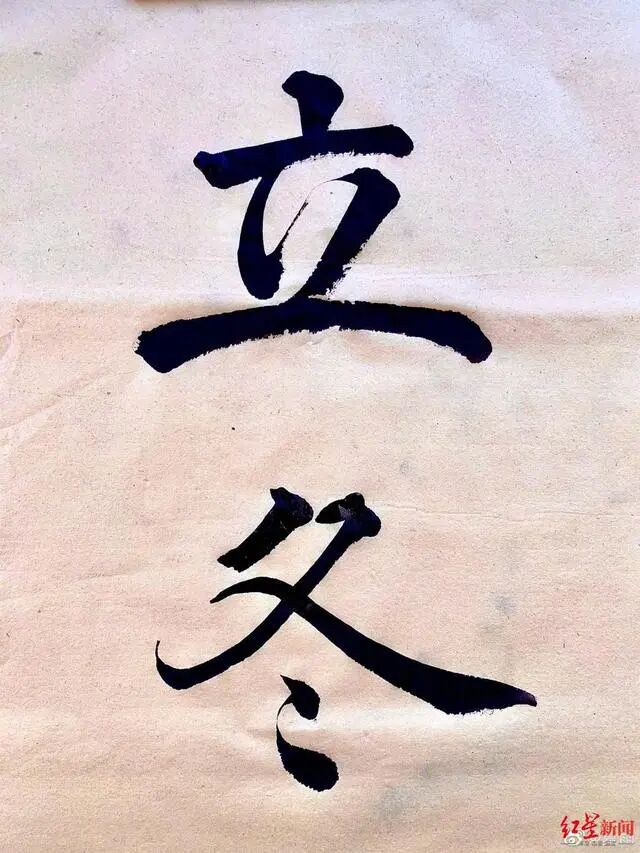 立
冬
红星新闻